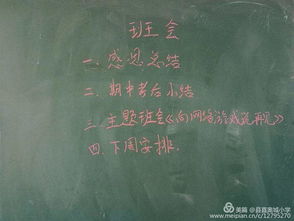 班会
一.感恩总结
二.期中考后小结
三.主题班会《向网络游戏说再见》
四.下周安排.
美篇 @县直奥城小学
https://meipian.cn/c/12795270